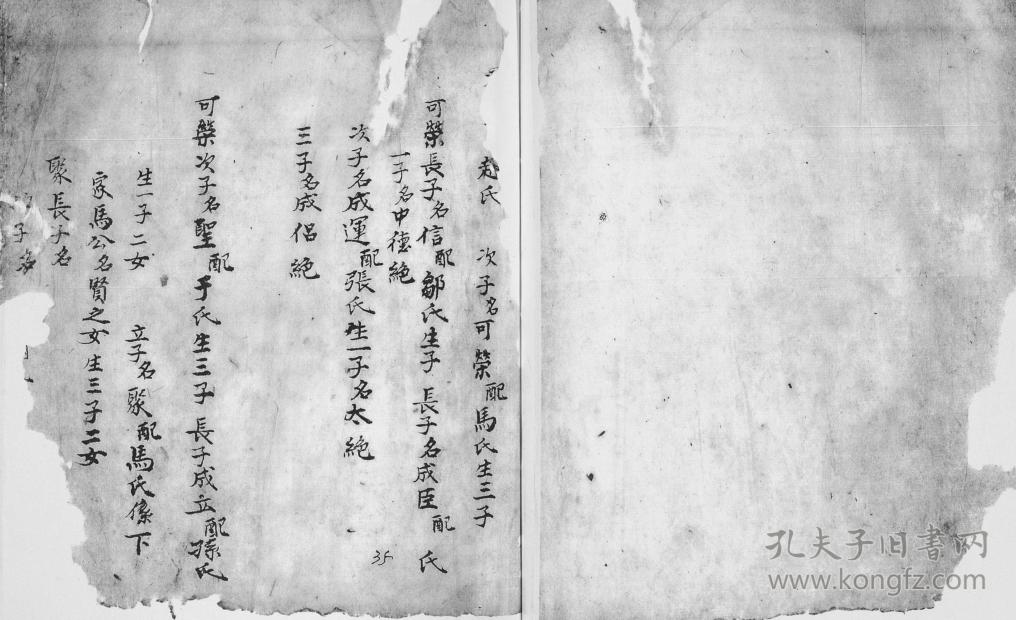 氏 次子名可榮配馬氏生三子
可榮長子名信配鄒氏生子 長子名成臣配 氏
一子名中德絶
次子名成運配張氏生一子名太絶
三子名成侶絶
可榮次子名聖配于氏生三子 長子成立配孫氏
生一子二女 立子名聚配馬氏係下
家馬公名賢之女生三子二女
聚長子名
子名
35
孔夫子旧書网
www.kongfz.com